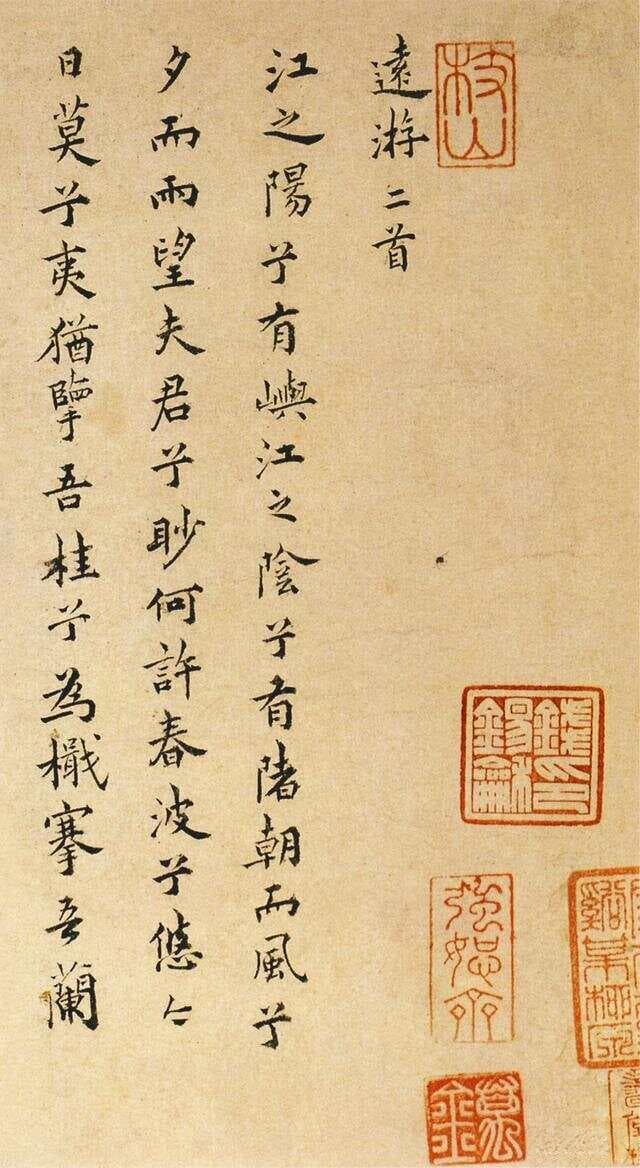 枝山
遠游二首
江之陽兮有嶼江之陰兮有陼朝而風兮
夕而雨望夫君兮眇何許春波兮悠々
日莫兮夷猶擥吾桂兮為檝搴吾蘭
強恕齋